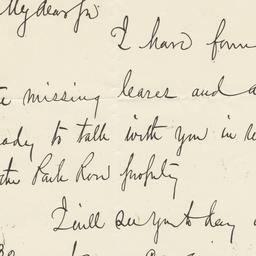 My dear Sir
I have foun
missing leases and a
ready to talk with you in re
the Park Row property
I will see you to day